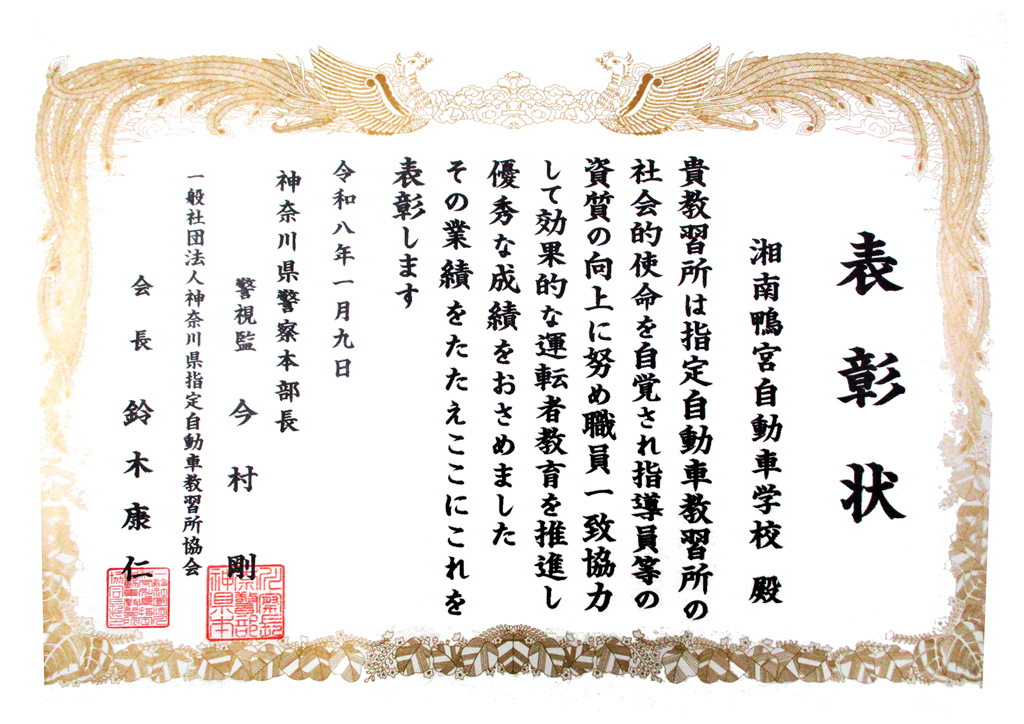 表彰状
湘南鴨宮自動車学校 殿
貴教習所は指定自動車教習所の
社会的使命を自覚され指導員等の
資質の向上に努め職員一致協力
して効果的な運転者教育を推進し
優秀な成績をおさめました
その業績をたたえここにこれを
表彰します
令和八年一月九日
神奈川県警察本部長
警視監 今村 剛
一般社団法人神奈川県指定自動車教習所協会
会長 鈴木康仁